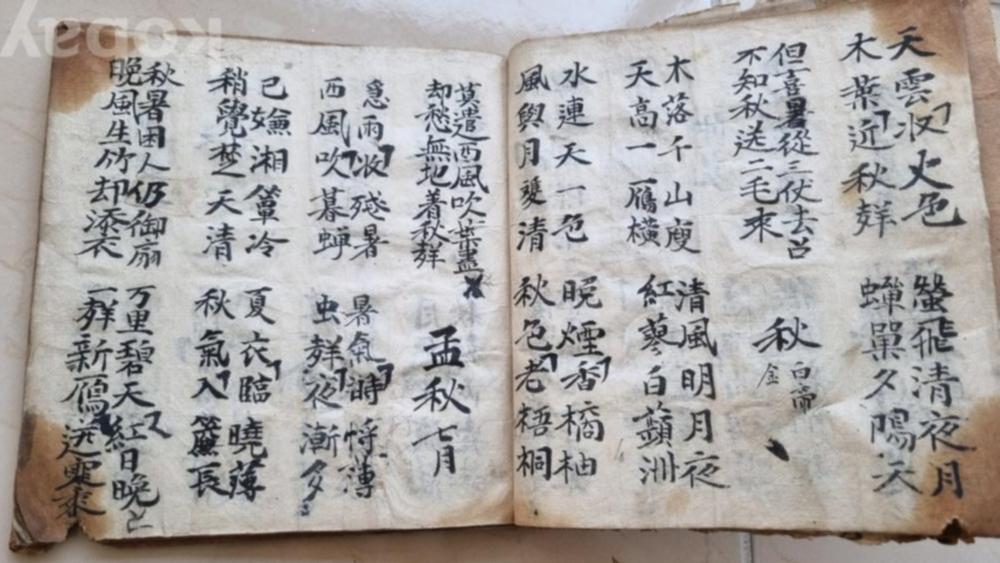 天雲収火色
木葉近秋聲
螢飛清夜月
蟬單夕陽天
但喜暑從三伏去
不知秋送二毛來
秋
白帝
金
木落千山瘦
天高一雁橫
清風明月夜
紅蓼白蘋洲
水連天一色
風與月雙清
晩煙香橘柚
秋色老梧桐
莫遣西風吹葉盡
却愁無地着秋聲
孟秋七月
急雨収殘暑
西風吹暮蟬
暑氣時將薄
虫聲夜漸多
已嫌湘簟冷
稍覺楚天清
夏衣臨曉薄
秋氣入簾長
秋暑困人仍御扇
晩風生竹却添衣
万里碧天紅日晩
一聲新鴈送
kobay